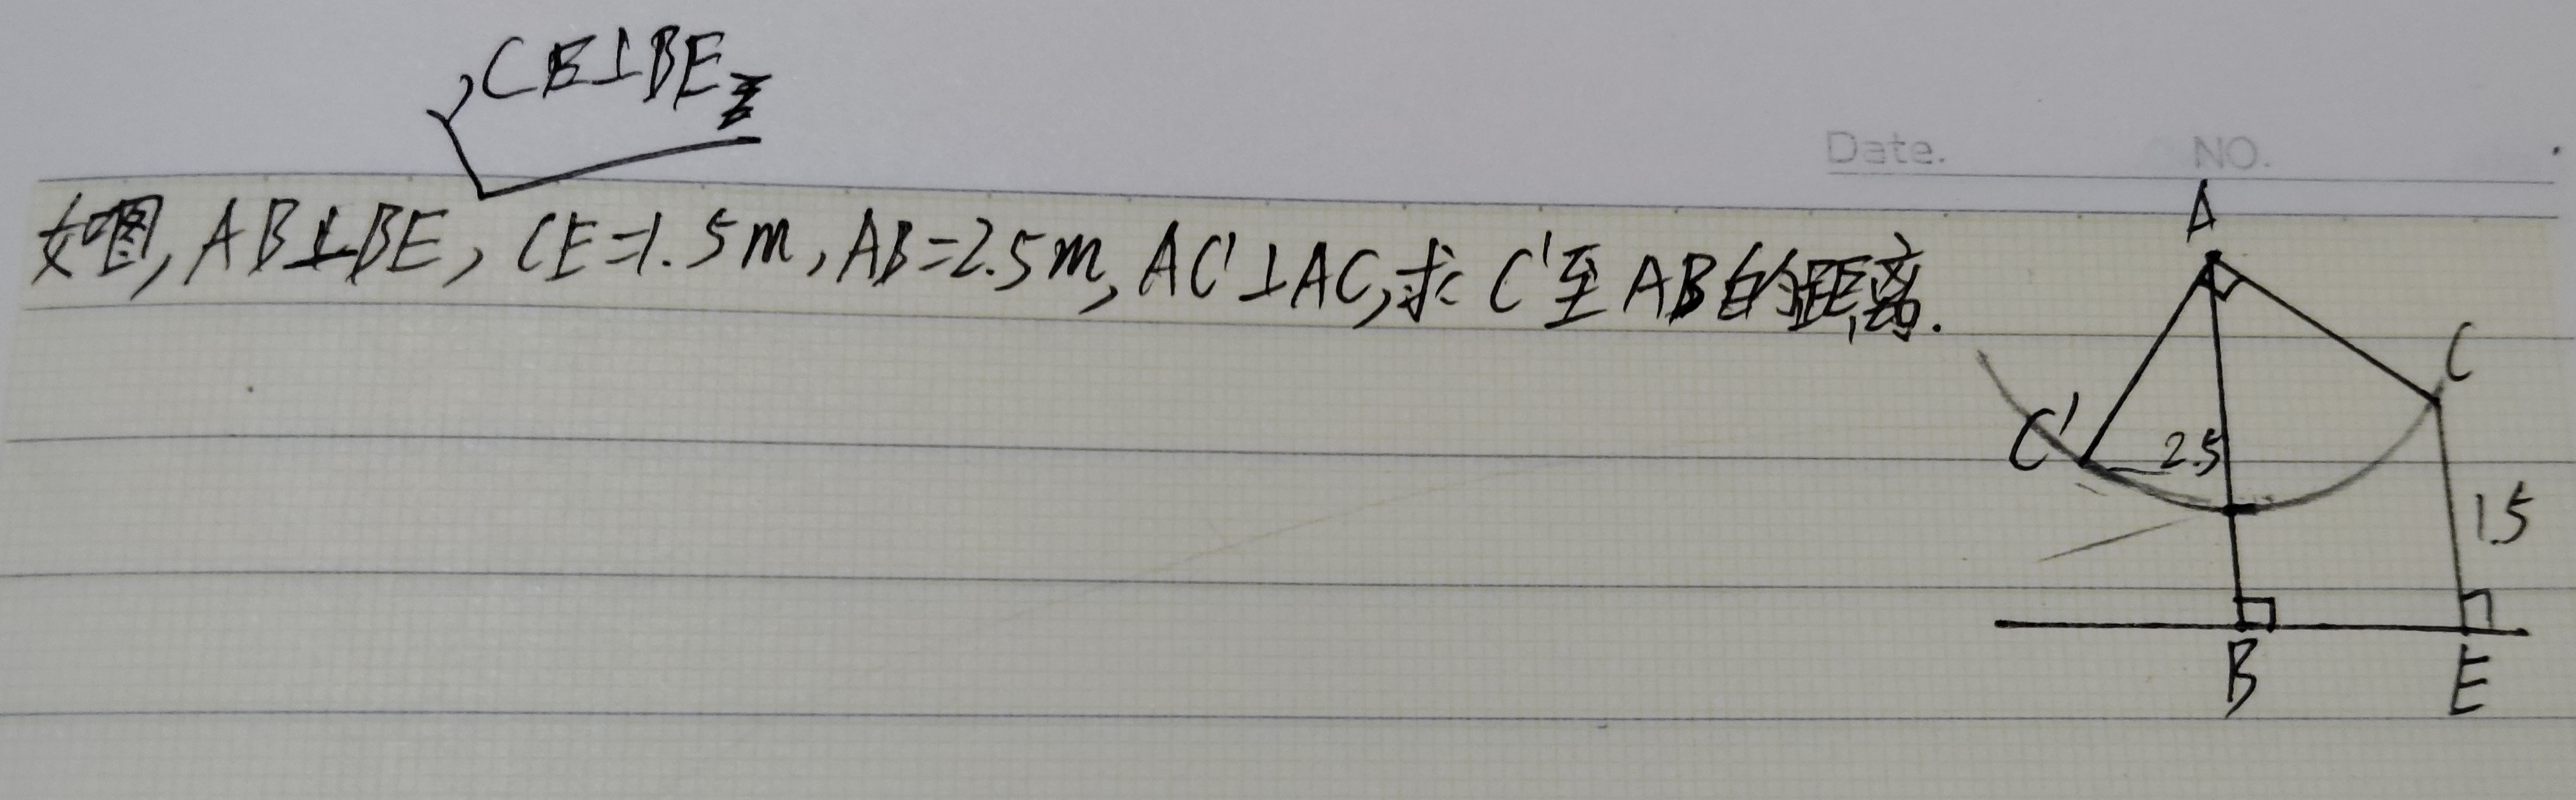 ,CE⊥BE
Date. NO.
如图,AB⊥BE,CE=1.5m,AB=2.5m,AC'⊥AC,求C'至AB的距离.
A
C
C'
2.5
1.5
B
E